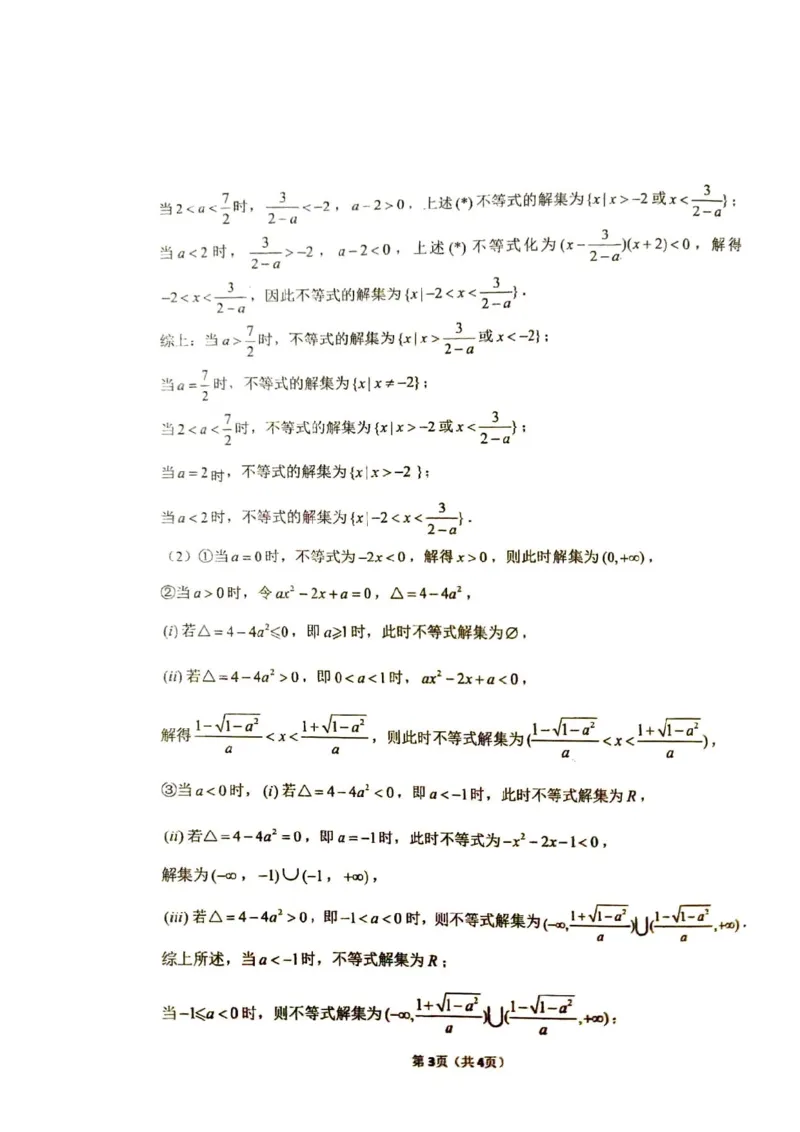 当 2<a<7/2 时，3/(2-a)<-2，a-2>0，上述(*)不等式的解集为{x|x>-2或x<3/(2-a)}；
当 a<2 时，3/(2-a)>-2，a-2<0，上述(*)不等式化为(x-3/(2-a))(x+2)<0，解得
-2<x<3/(2-a)，因此不等式的解集为{x|-2<x<3/(2-a)}．
综上：当 a>7/2 时，不等式的解集为{x|x>3/(2-a)或x<-2}；
当 a=7/2 时，不等式的解集为{x|x≠-2}；
当 2<a<7/2 时，不等式的解集为{x|x>-2或x<3/(2-a)}；
当 a=2 时，不等式的解集为{x|x>-2}；
当 a<2 时，不等式的解集为{x|-2<x<3/(2-a)}．
（2）①当 a=0 时，不等式为 -2x<0，解得 x>0，则此时解集为(0,+∞)，
②当 a>0 时，令 ax²-2x+a=0，△=4-4a²，
(i)若△=4-4a²⩽0，即 a⩾1 时，此时不等式解集为∅，
(ii)若△=4-4a²>0，即 0<a<1 时，ax²-2x+a<0，
解得 (1-√(1-a²))/a<x<(1+√(1-a²))/a，则此时不等式解集为((1-√(1-a²))/a<x<(1+√(1-a²))/a)，
③当 a<0 时，(i)若△=4-4a²<0，即 a<-1 时，此时不等式解集为 R，
(ii)若△=4-4a²=0，即 a=-1 时，此时不等式为 -x²-2x-1<0，
解集为(-∞，-1)∪(-1，+∞)，
(iii)若△=4-4a²>0，即 -1<a<0 时，则不等式解集为(-∞,(1+√(1-a²))/a)∪((1-√(1-a²))/a,+∞)．
综上所述，当 a<-1 时，不等式解集为 R；
当 -1⩽a<0 时，则不等式解集为(-∞,(1+√(1-a²))/a)∪((1-√(1-a²))/a,+∞)；
第3页（共4页）